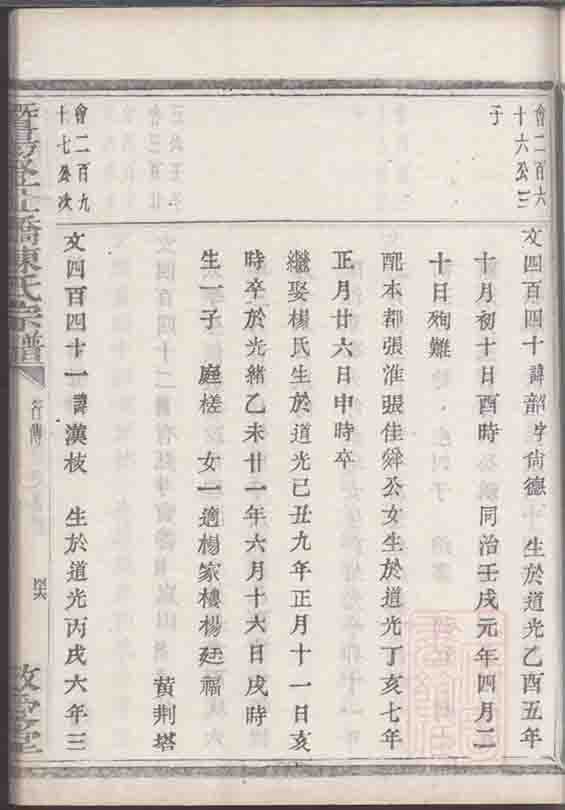 會二百六
十六公三
子
文四百四十 諱韶 字尙德 生於道光乙酉五年
十月初十日酉時 同治壬戌元年四月二
十日殉難
配本都張淮張佳舜公女生於道光丁亥七年
正月廿六日申時卒
繼娶楊氏生於道光己丑九年正月十一日亥
時卒於光緒乙未廿一年六月十六日戌時
生一子 庭槎 女一適楊家樓楊廷福
黃荆塔
會二百九
十七公次
文四百四十一 諱漢枝 生於道光丙戌六年三
橋陳氏宗譜
行傳